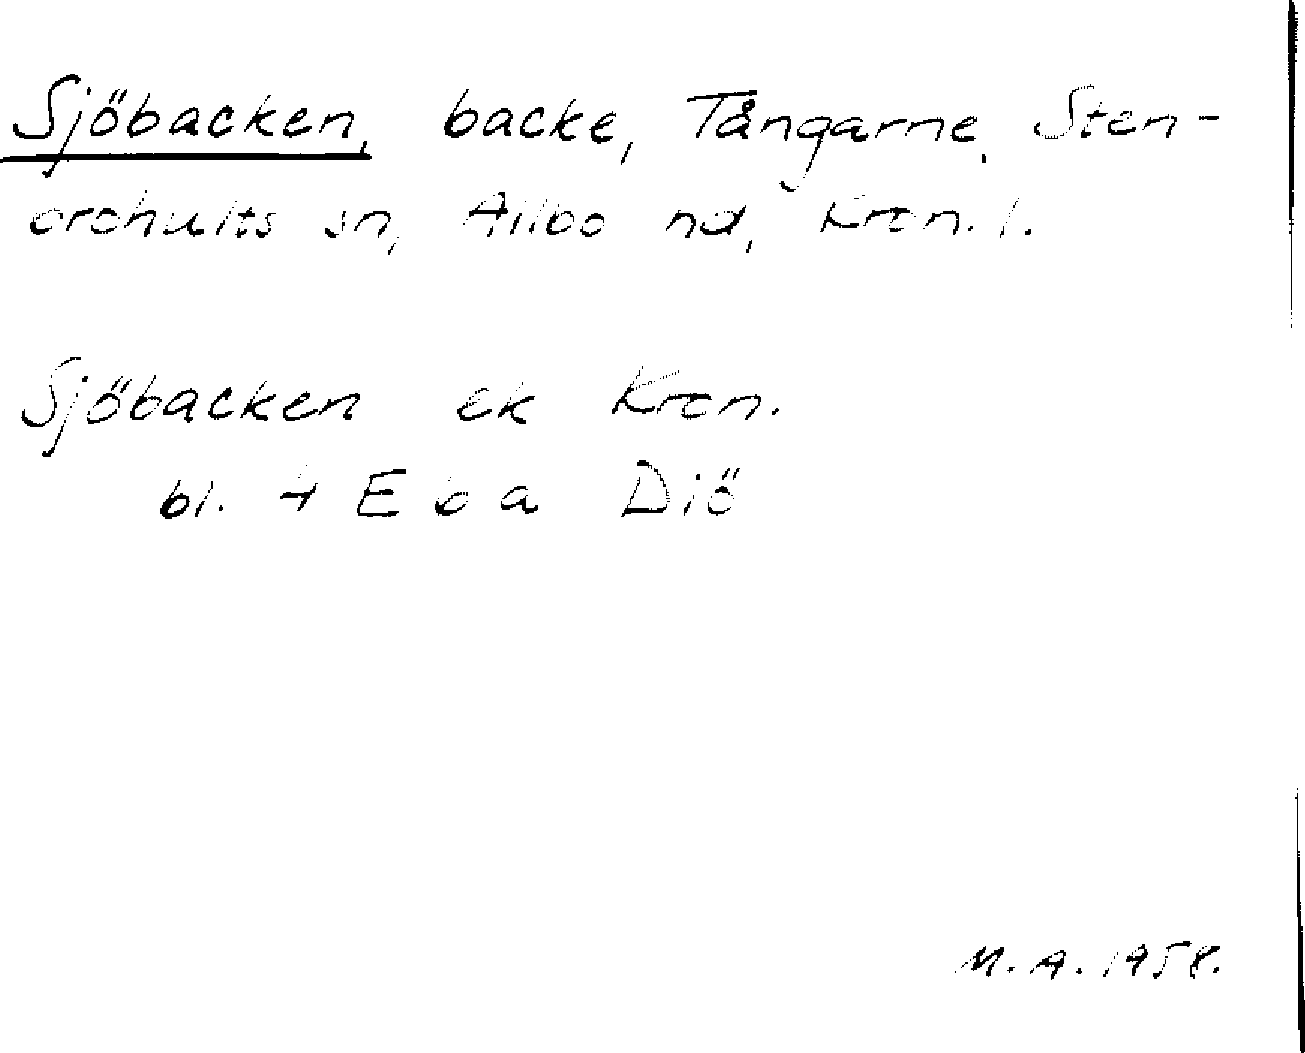 Sjöbacken, backe, Tångarne, Sten-
brohults sn, Allbo hd, Kron. l.
Sjöbacken ek Kron.
bl. 4 E b a Diö
M. A. 1958.